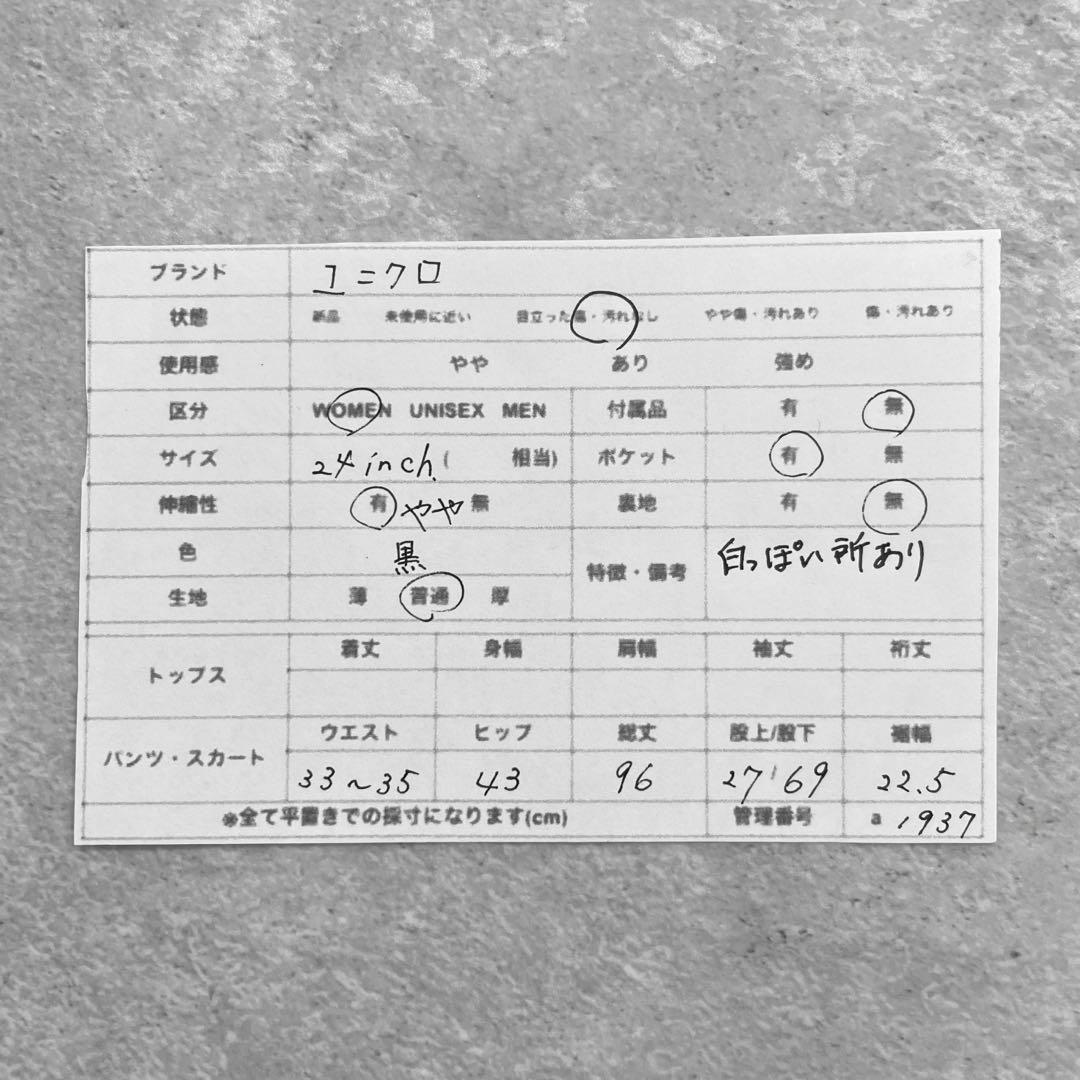 ブランド ユニクロ
状態 新品 未使用に近い 目立った傷・汚れなし やや傷・汚れあり 傷・汚れあり
使用感 やや あり 強め
区分 WOMEN UNISEX MEN 付属品 有 無
サイズ 24inch.( 相当) ポケット 有 無
伸縮性 有 やや 無 裏地 有 無
色 黒 特徴・備考 白っぽい所あり
生地 薄 普通 厚
トップス 着丈 身幅 肩幅 袖丈 裄丈
パンツ・スカート ウエスト ヒップ 総丈 股上/股下 裾幅
33~35 43 96 27/69 22.5
※全て平置きでの採寸になります(cm) 管理番号 a 1937